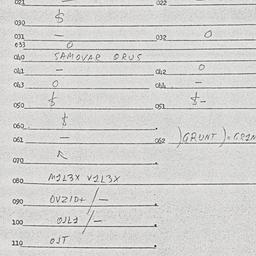 021 022
030 $
031 — 032 0
033 0
040 SAMOVAR ORUS
041 — 042 0
043 0 044 —
050 $ 051 $-
060 $
061 — 062 )GRUNT)=GRIN
070
080 M1L3X V1L3X
090 OVZID+/—
100 OJL1/—
110 OJT